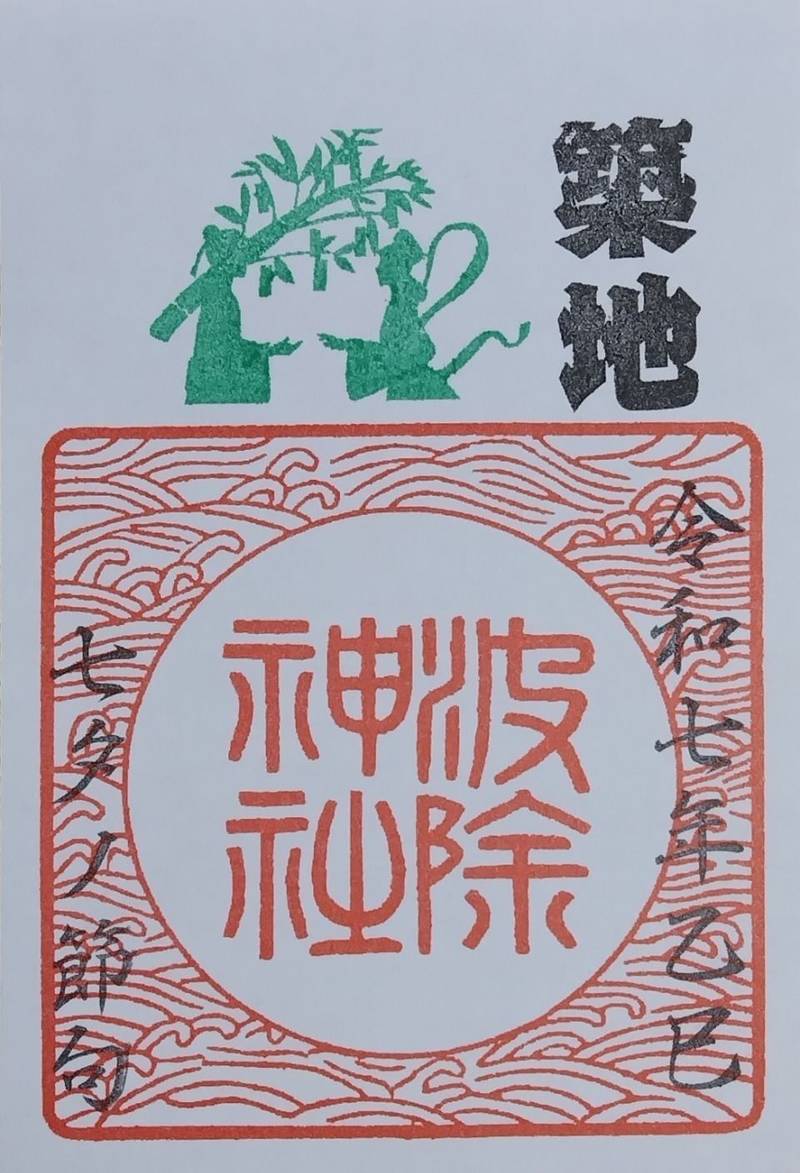 築地
令和七年乙巳
波除
神社
七夕ノ節句